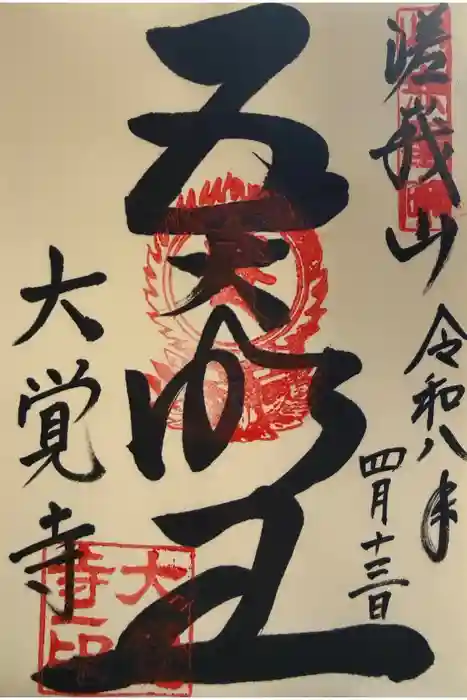 嵯峨山
令和八年
四月十三日
五大明王
大覚寺
大覚寺印